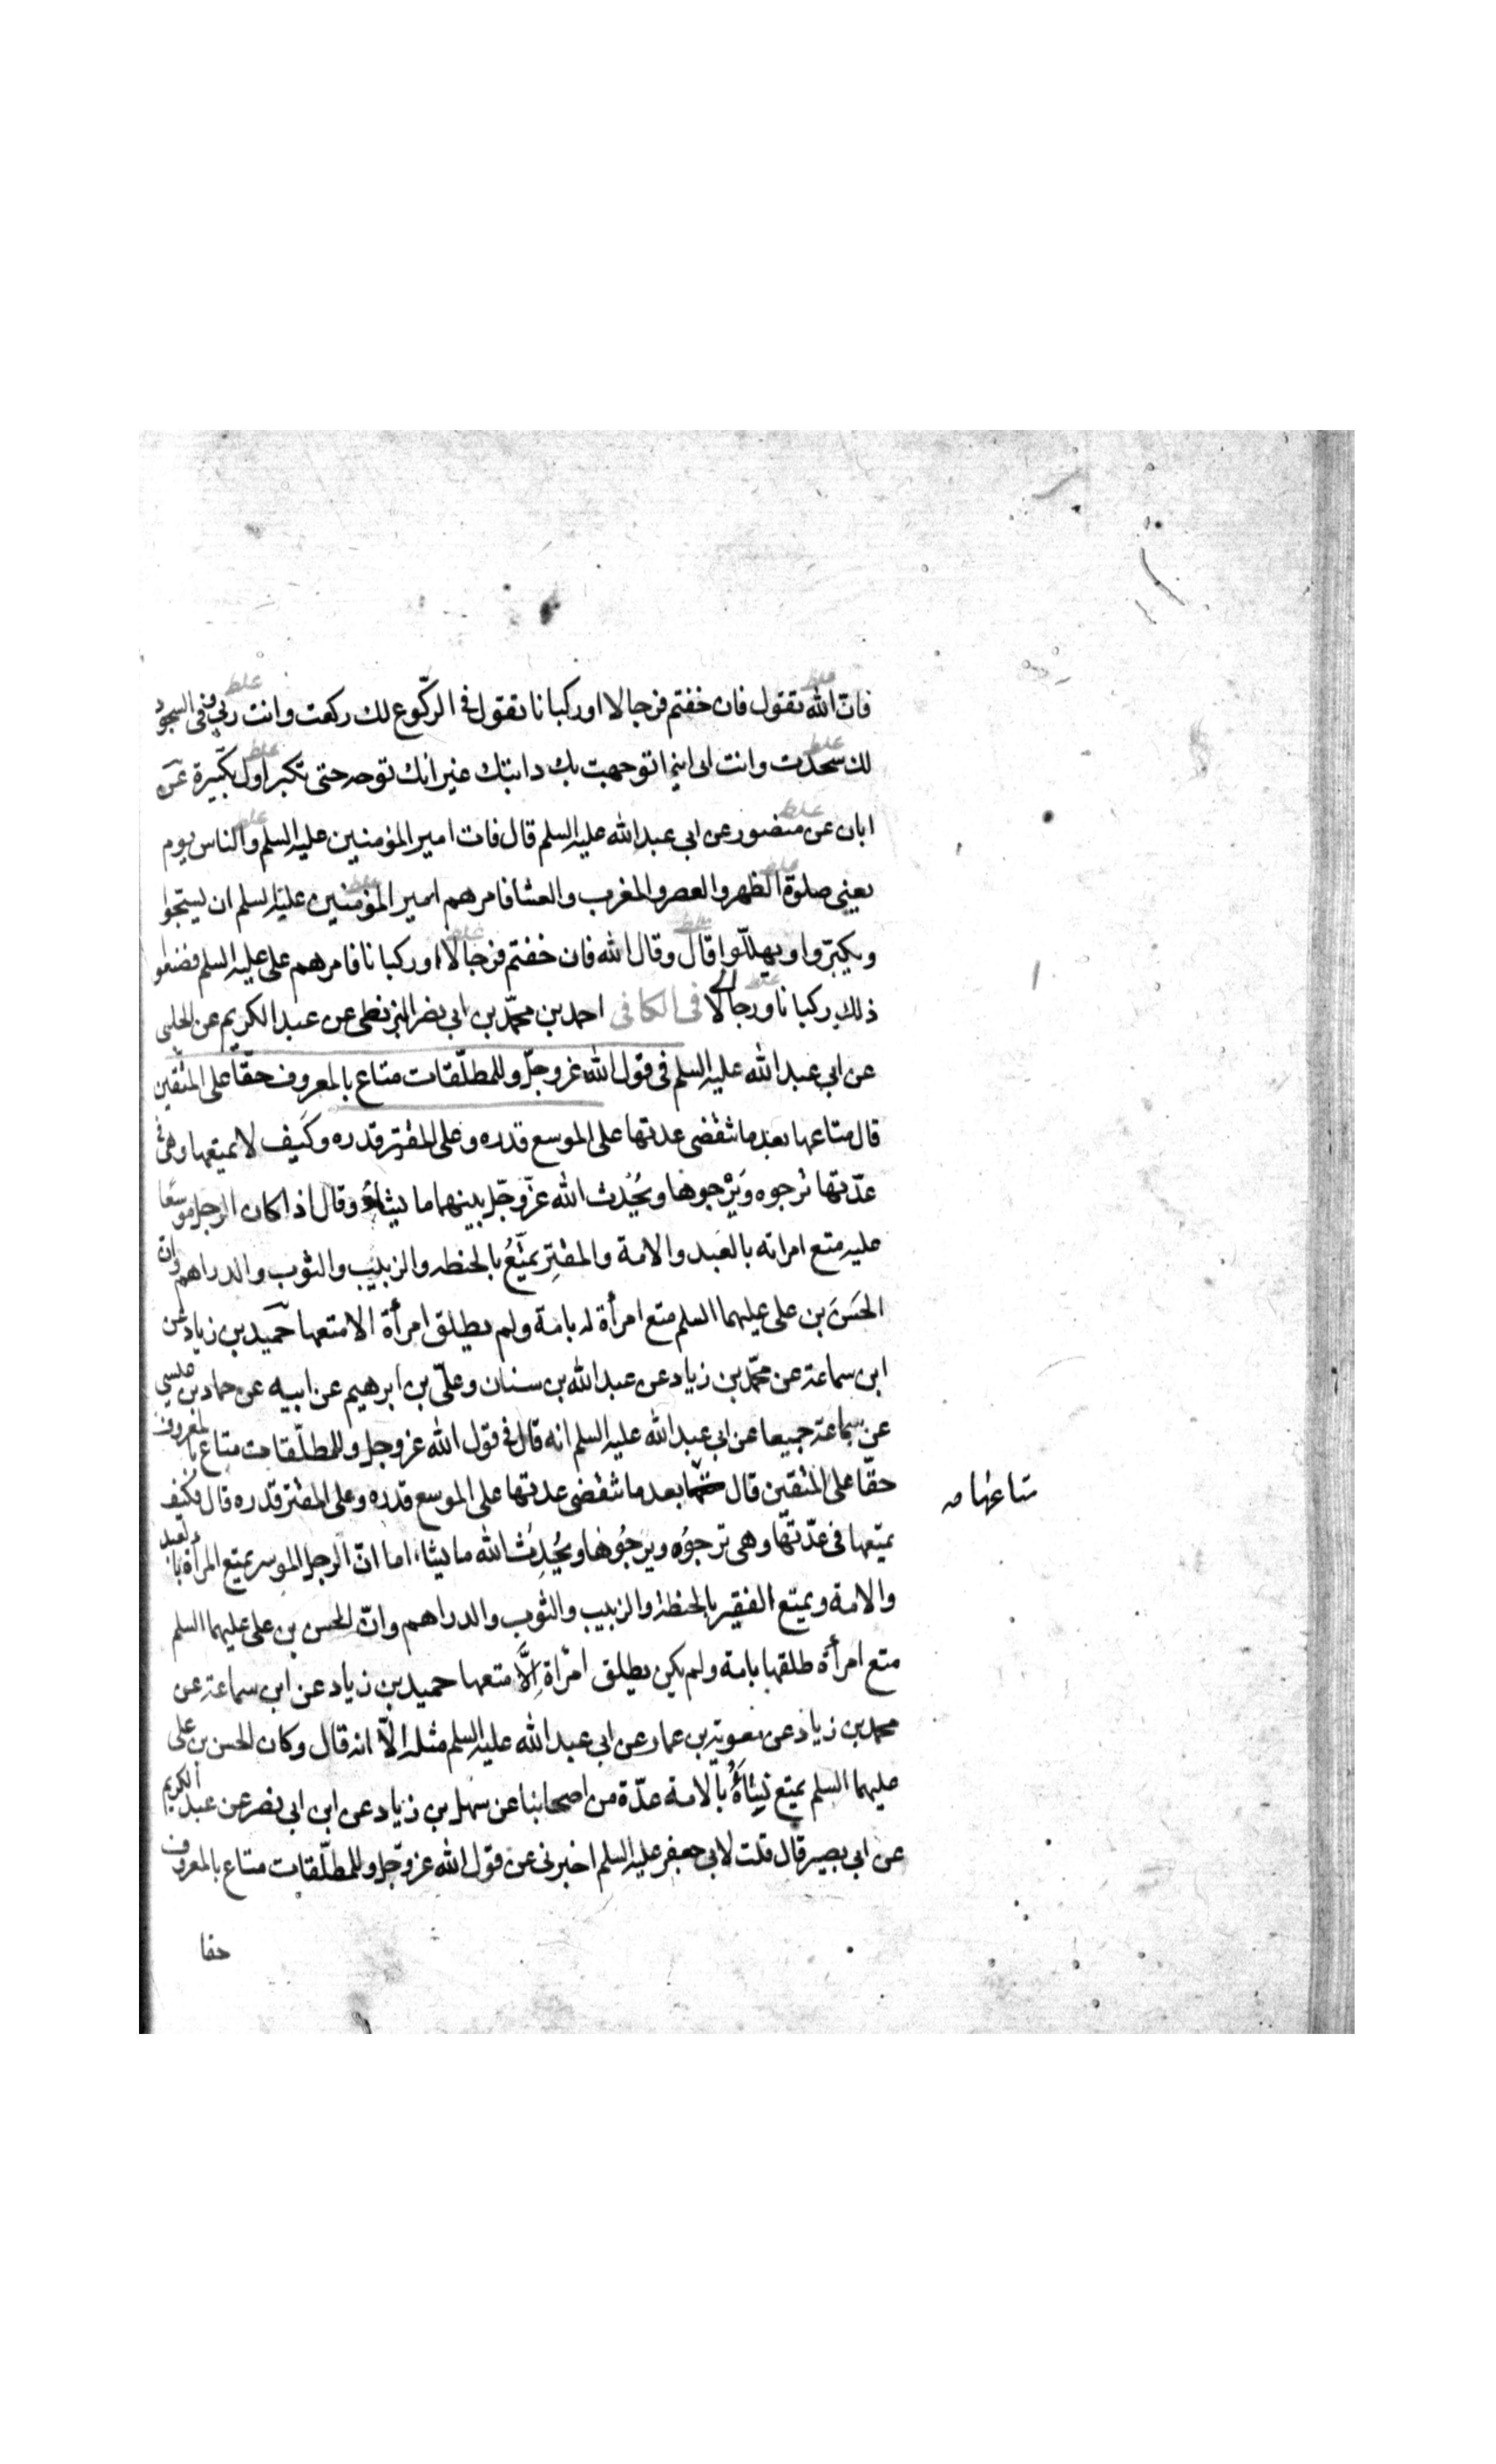 فانّ الله يقول فان خفتم فرجالا او ركبانا تقول فى الركّوع لك ركعت وانت ربى وفى السجود
لك سجدت وانت ربى اينما توجهت بك دابتك غير انك توجه حتى تكبر اول تكبيرة عن
ابان عن منصور عن ابى عبد الله عليه السلم قال فات امير المؤمنين عليه السلم والناس يوم
يعنى صلوة الظهر والعصر والمغرب والعشا فامرهم امير المؤمنين عليه السلم ان يسبحوا
ويكبّروا ويهللّوا قال وقال الله فان خفتم فرجالا او ركبانا فامرهم على عليه السلم فضعوا
ذلك ركبانا ورجالا فى الكافى احمد بن محمّد بن ابى نصر البزنطى عن عبد الكريم عن الحلبى
عن ابى عبد الله عليه السلم فى قول الله عز وجلّ وللمطلّقات متاع بالمعروف حقّا على المتّقين
قال متاعها بعد ما تنقضى عدتها على الموسع قدره وعلى المقتر قدره وكيف لا يمتعها وهى فى
عدّتها ترجوه ويَرْجوها ويُحْدِث الله عزّ وجلّ بينهما ما يشاءُ وقال اذا كان الرجل موسّعا
عليه متع امراته بالعبد والامة والمقتِر يمتّعُ بالحنطه والزبيب والثوب والدراهم وانّ
الحسَن بن على عليهما السلم متع امرأة له بامة ولم يطلق امرأة الا متعها حميد بن زياد عن
ابن سماعة عن محمّد بن زياد عن عبد الله بن سنان وعلىّ بن ابرهيم عن ابيه عن حماد بن عيسى
عن سماعة جميعا عن ابى عبد الله عليه السلم انه قال فى قول الله عز وجل وللمطلّقات متاع بالمعروف
حقّا على المتّقين قال بعد ما تنقضى عدتها على الموسع قدره وعلى المقتر قدره قال فكيف
متاعها صه
يمتعها فى عدّتها وهى ترجوُه ويرجُوها ويُحْدِثُ الله ما يشاء اما انّ الرجل الموسر يمتع المرأة بالعبد
والامة ويمتع الفقير بالحنطة والزبيب والثوب والدراهم وانّ الحسن بن على عليهما السلم
متع امرأة طلقها بامة ولم يكن يطلق امرأة اِلّا متعها حميد بن زياد عن ابن سماعة عن
محمد بن زياد عن معوية بن عمار عن ابى عبد الله عليه السلم مثله الّا انه قال وكان الحسن بن على
عليهما السلم يمتع نِساءَهُ بالامة عدّة من اصحابنا عن سهل بن زياد عن ابن ابى نصر عن عبد الكريم
عن ابى بصير قال قلت لابى جعفر عليه السلم اخبرنى عن قول الله عز وجل وللمطلّقات متاع بالمعروف
حقا